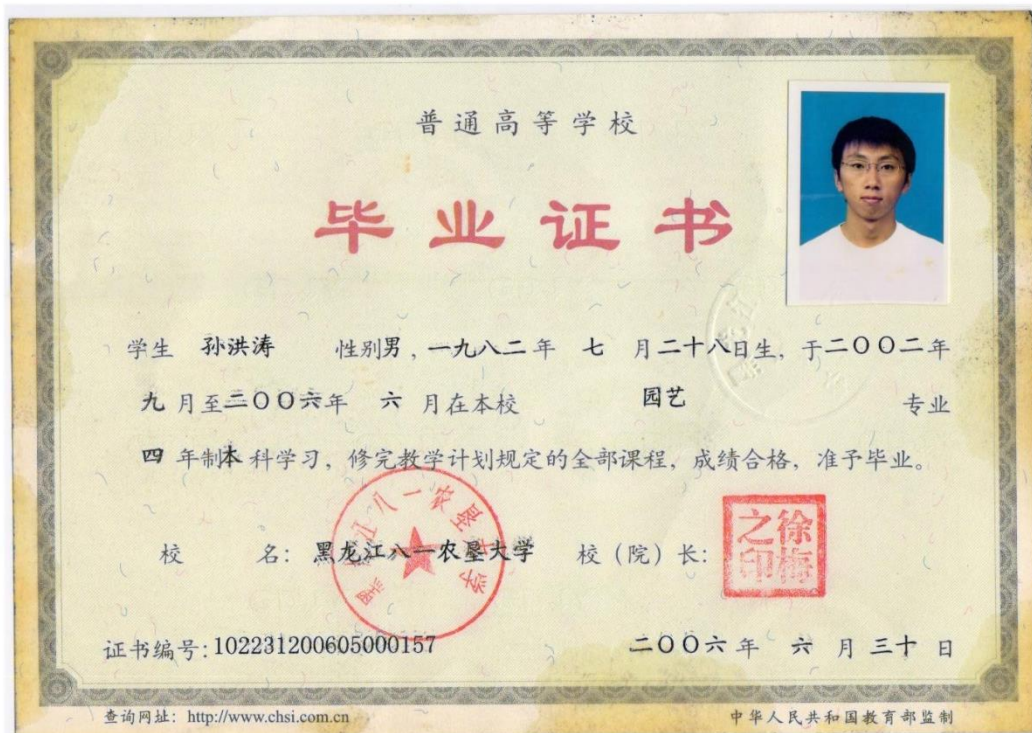 普通高等学校
毕业证书
学生 孙洪涛 性别男，一九八二年 七 月二十八日生，于二〇〇二年
九月至二〇〇六年 六 月在本校 园艺 专业
四 年制本科学习，修完教学计划规定的全部课程，成绩合格，准予毕业。
校 名：黑龙江八一农垦大学 校（院）长：
黑龙江八一农垦大学
徐梅之印
证书编号：102231200605000157 二〇〇六年 六 月三十日
查询网址：http://www.chsi.com.cn 中华人民共和国教育部监制